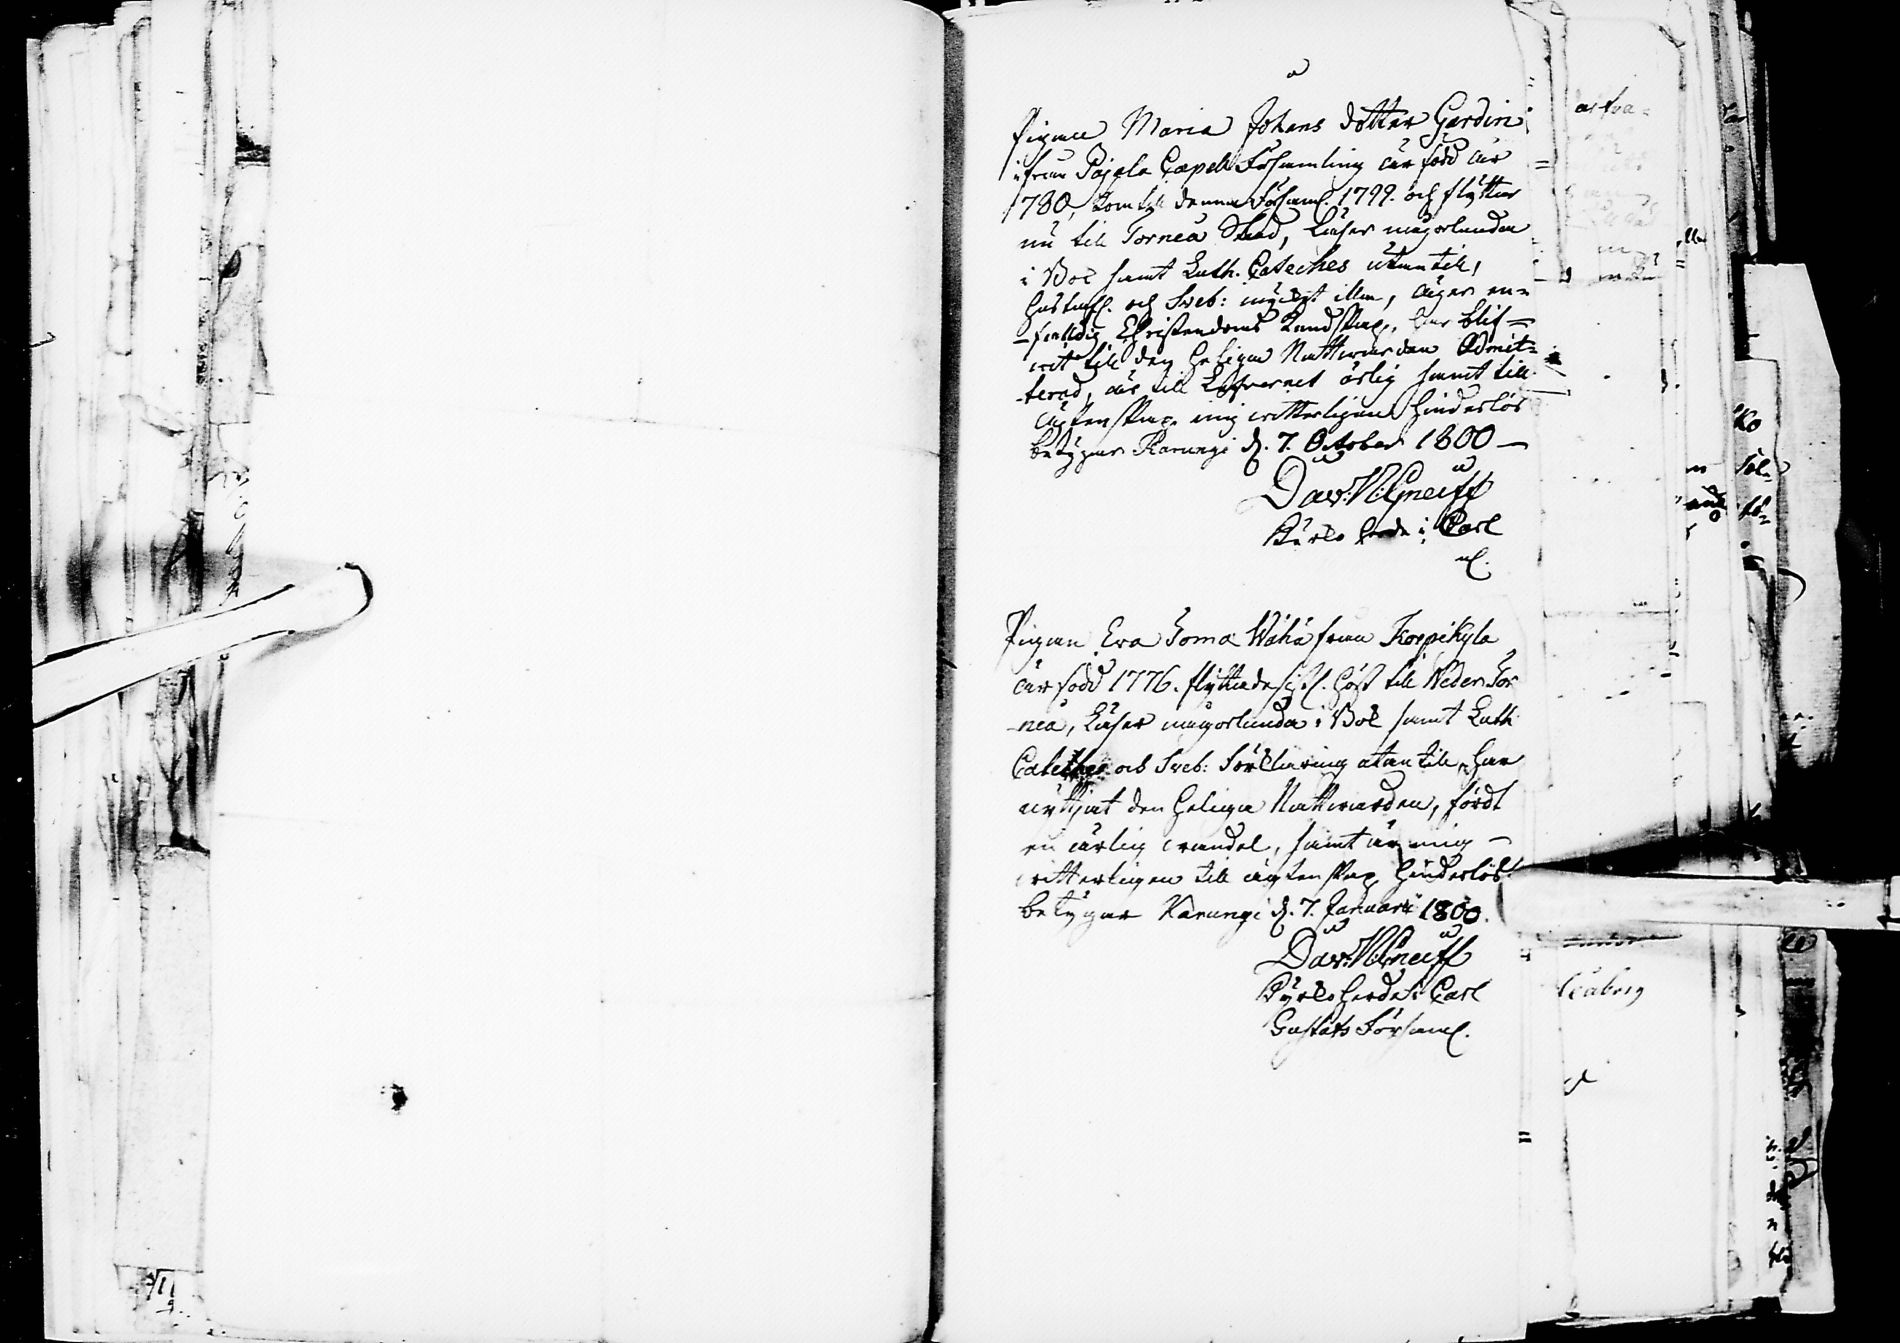 Pigan Maria Johans dotter Gardin
ifrån Pajala Capell Församling är född år
1780, kom till denna Församl. 1799. och flyttar
nu till Torneå Stad, Läser någorlunda
i Bok samt Luth. Cateches utantill,
Hustafl. och Sveb: mycket illa, äger en-
-faldig Christendoms Kundskap, har blif-
wit till den Heliga Nattwarden Admit-
-terad, är till Lefvernet ärlig samt till
Äktenskap mig witterligen hinderlös
betygar Karungi d. 7. October 1800 —
Dav: N: Gneiff
Kyrko herde i Carl
Pigan Eva Toma Wähä från Korpikylä
är född 1776. flyttade sistl. höst till Neder Tor
-neå, Läser någorlunda i Bok samt Luth
Cateches och Sveb: Förklaring utantill, har
nyttjat den Heliga Nattwarden, fördt
en ärlig wandel, samt är mig
witterligen till äktenskap hinderlös
betygar Karungi d. 7. Januarii 1800.
Dav: N: Gneiff
Kyrko herde i Carl
Gustafs Församl.